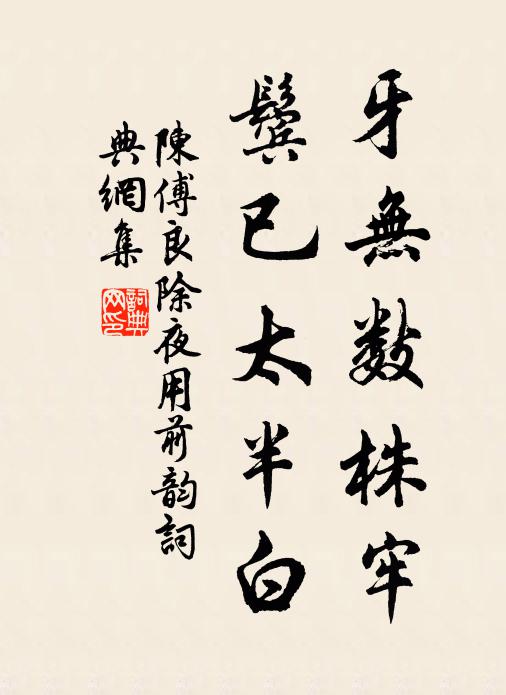 牙無數株牢
鬢已太半白
陳傅良除夜用前韵詞
典網集
詞典网印